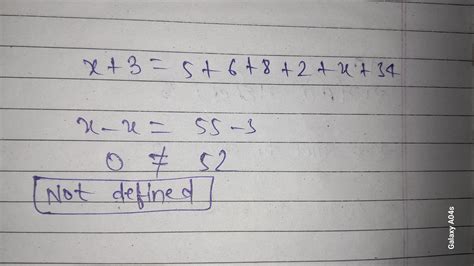 x + 3 = 5 + 6 + 8 + 2 + x + 34
x - x = 55 - 3
0 ≠ 52
Not defined
Galaxy A04s